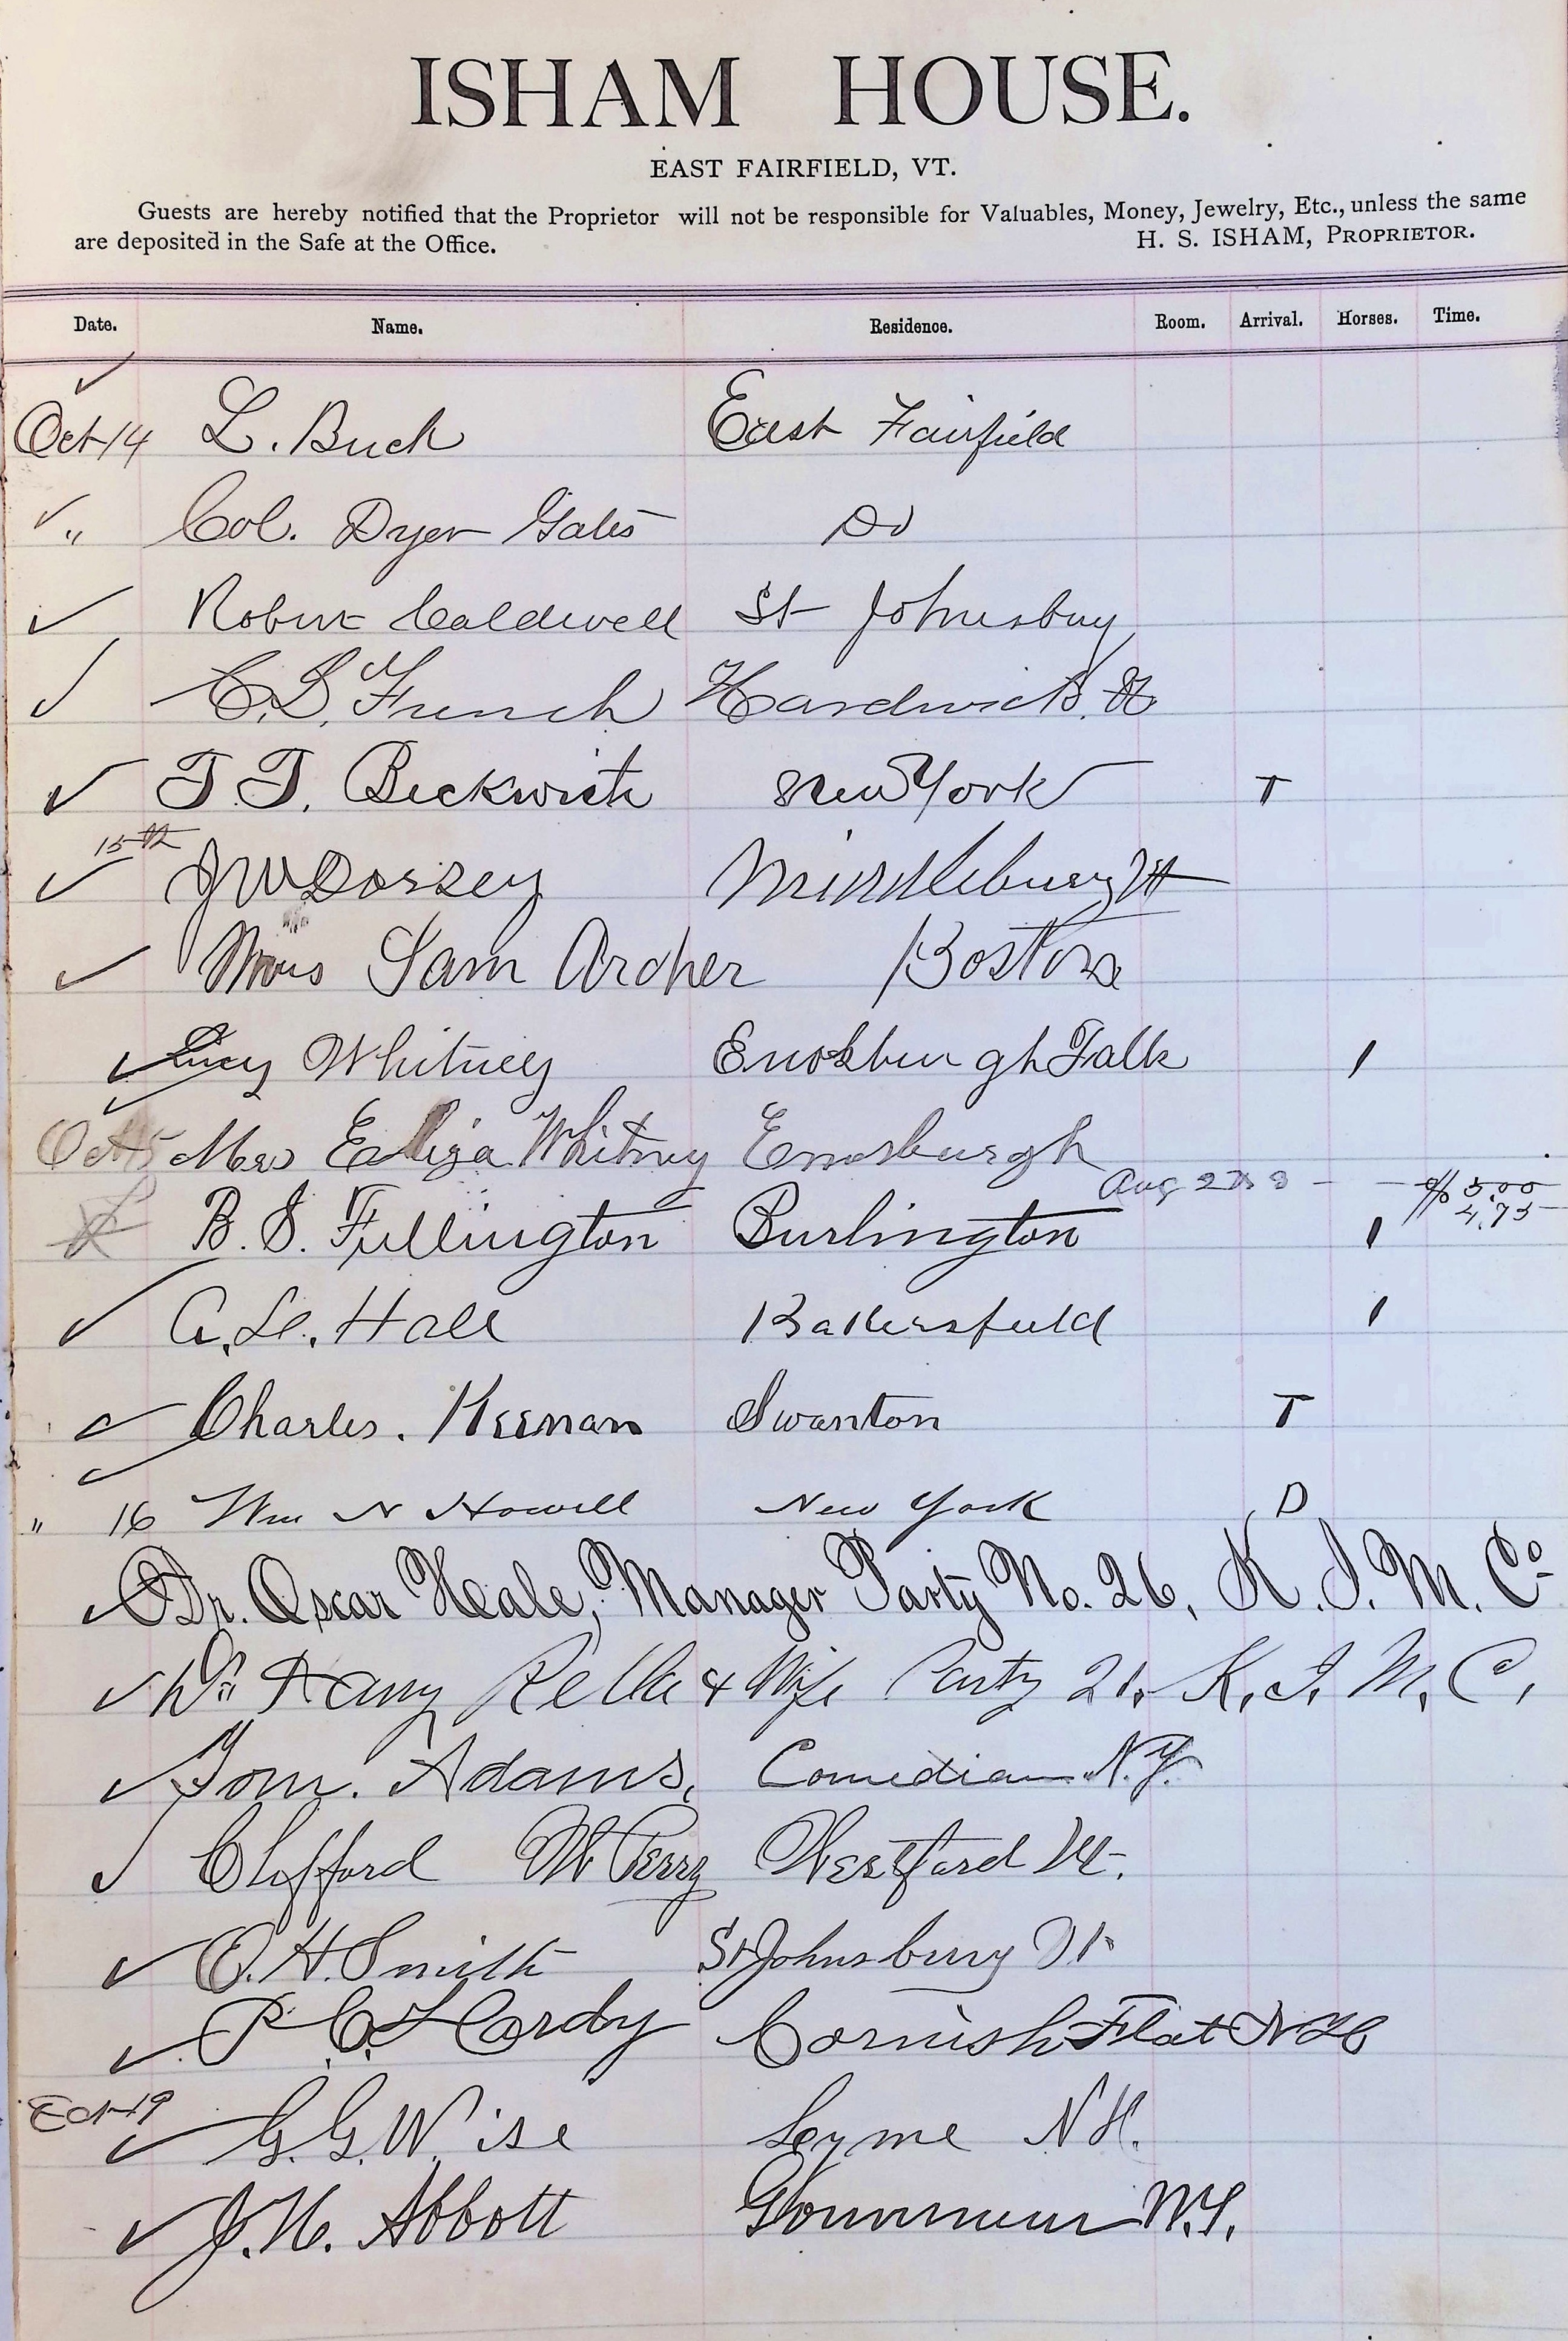 ISHAM HOUSE.
EAST FAIRFIELD, VT.
Guests are hereby notified that the Proprietor will not be responsible for Valuables, Money, Jewelry, Etc., unless the same
are deposited in the Safe at the Office. H. S. ISHAM, PROPRIETOR.
Date. Name. Residence. Room. Arrival. Horses. Time.
Oct 14 L. Buck East Fairfield
" Col. Dyer Gates Do
Robert Caldwell St Johnsbury
C. D. French Hardwick. Vt
T. T. Beckwith New York T
15th J W Dorsey Middlebury Vt
Sam Archer Boston
Lucy Whitney Enosburgh Falls 1
Oct 15 Mrs Eliza Whitney Enosburgh
Aug 27 5.00
4.75
B. S. Fullington Burlington 1
Hall Bakersfield 1
Charles. Keenan Swanton T
" 16 Wm N Howell New York D
Dr. Oscar Neale, Manager Party No. 26, K. I. M. Co
Dr. Harry & Wife Party 21. K. I. M. C.
Tom. Adams, Comedian N.Y.
Clifford M Perry Westford Vt.
O. H. Smith St Johnsbury Vt
P. C. L Cordy Cornish Flat N H
Oct 19 G. G. Wise Lyme N H.
J. H. Abbott Gouverneur N.Y.